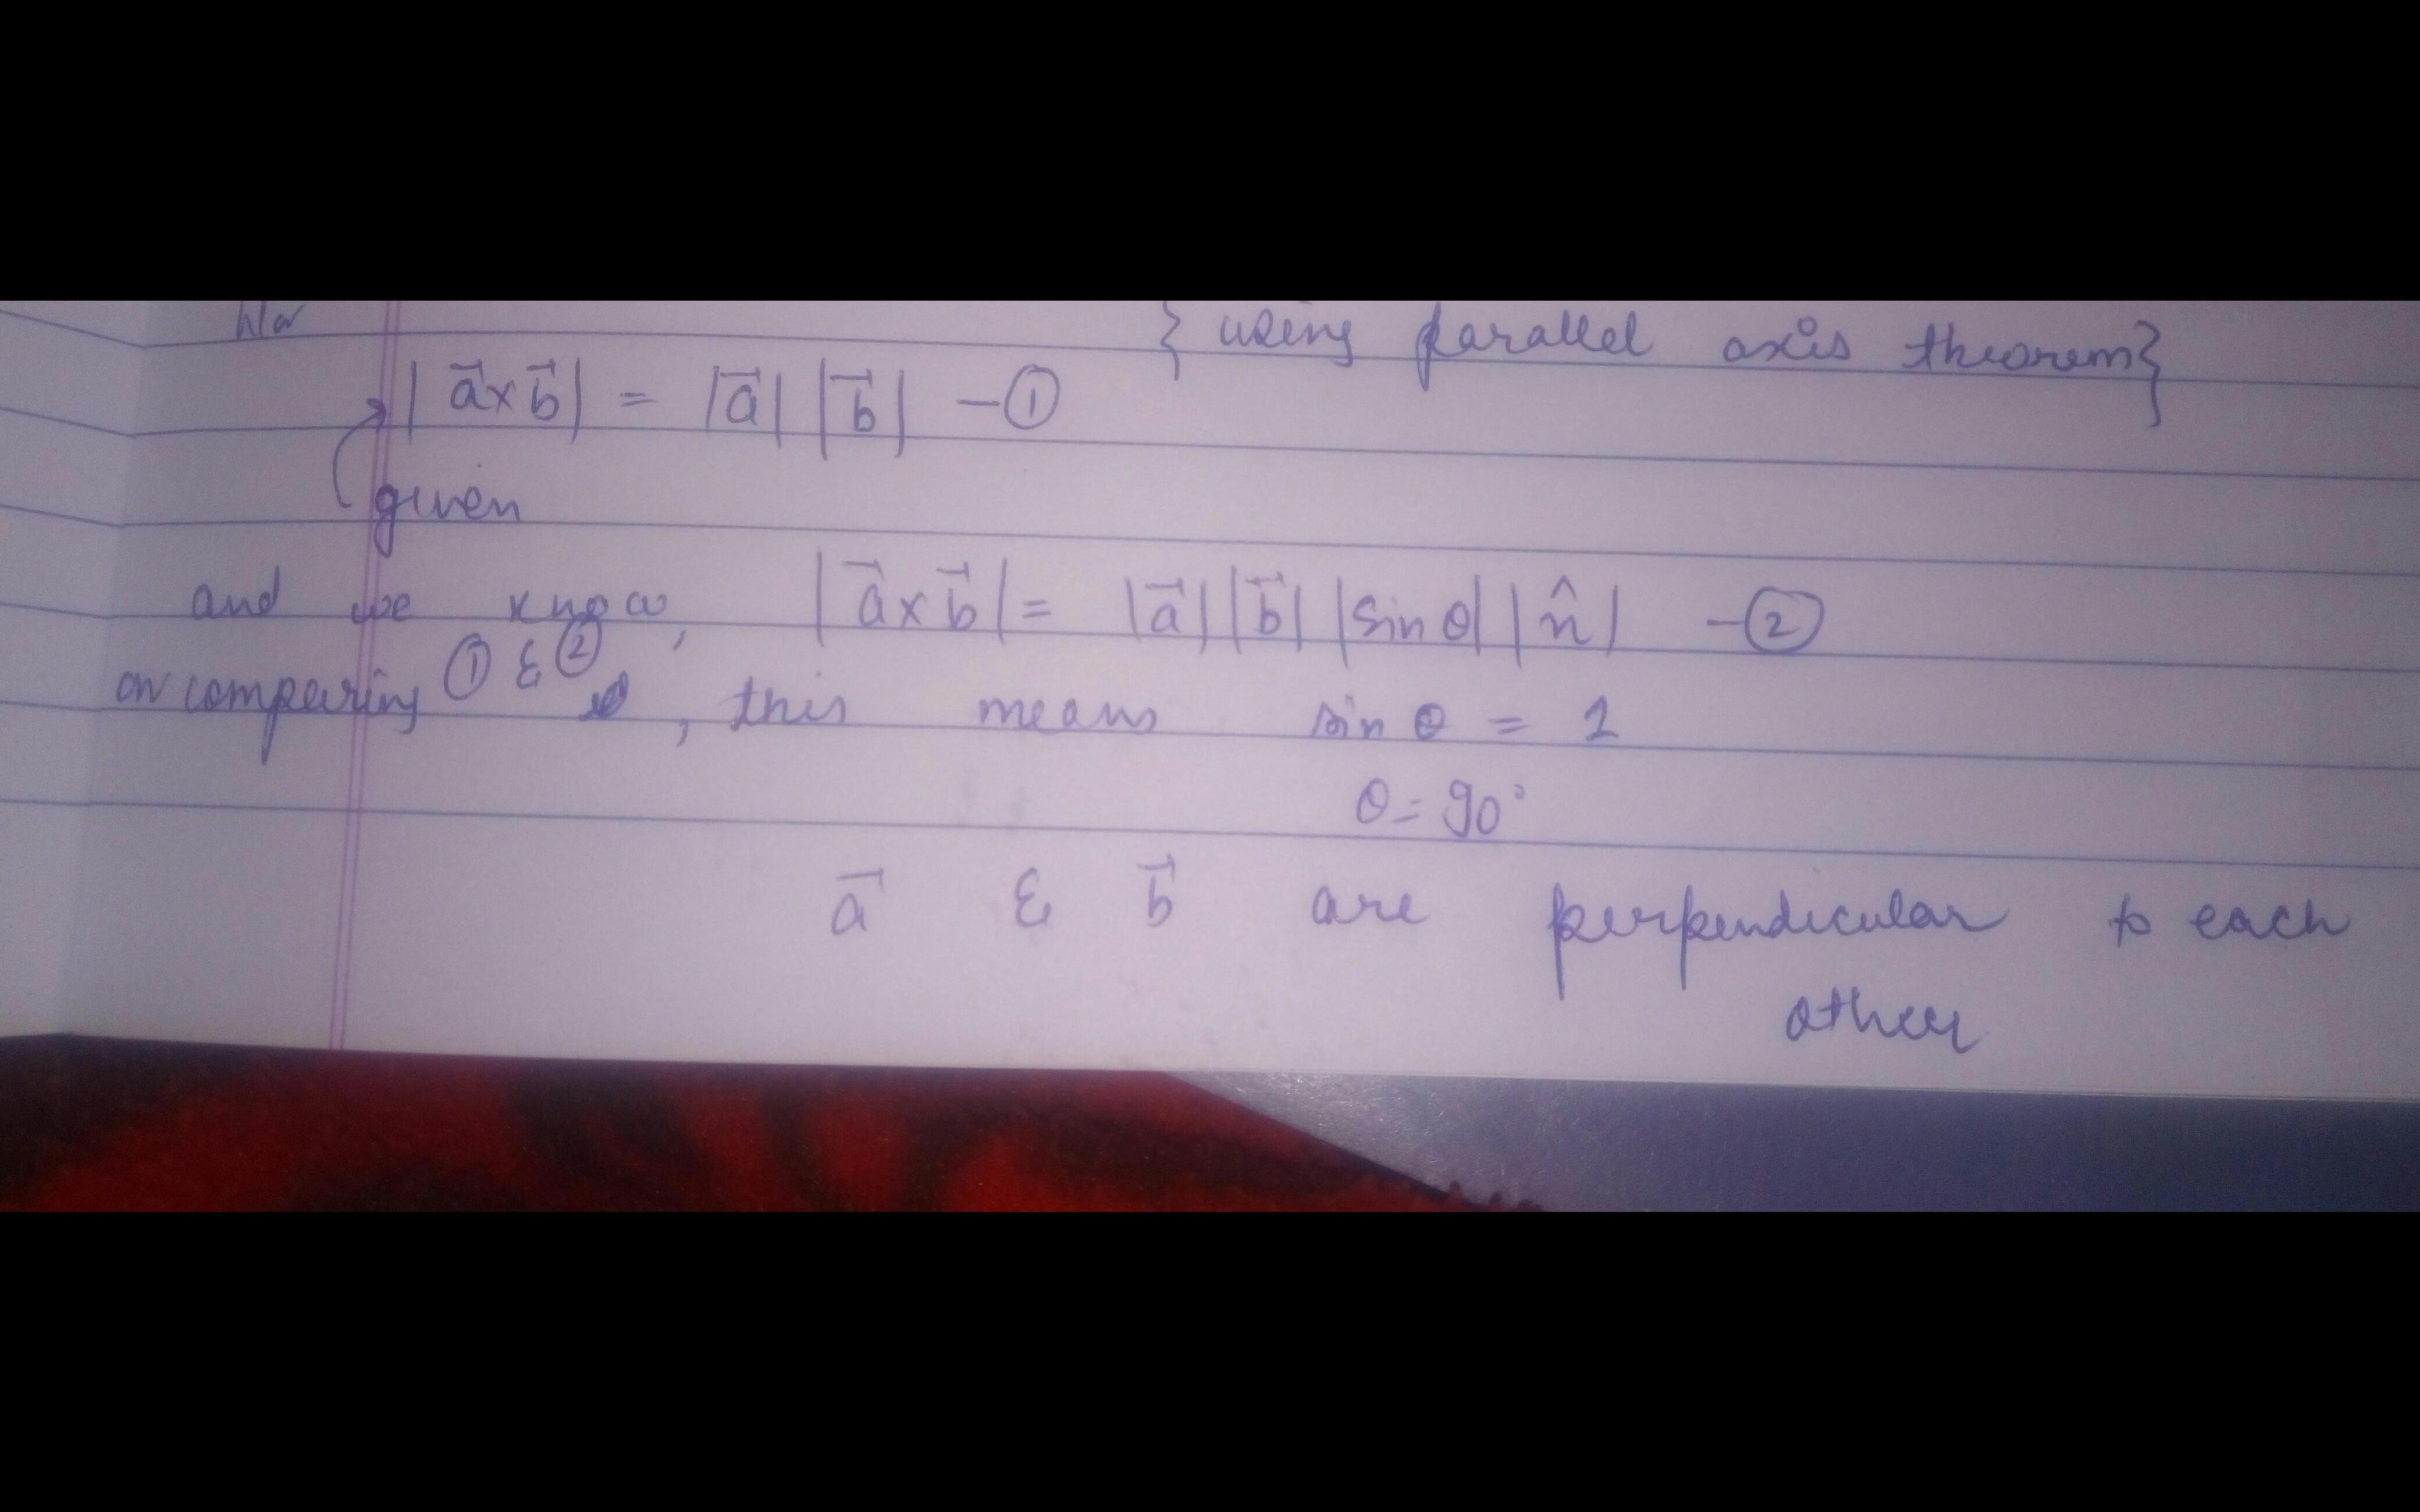 { using parallel axis theorem}
|a⃗ × b⃗| = |a⃗| |b⃗| — ①
given
and we know, |a⃗ × b⃗| = |a⃗| |b⃗| |sin θ| |n̂| — ②
on comparing ① & ② , this means sin θ = 1
θ = 90°
a⃗ & b⃗ are perpendicular to each
other